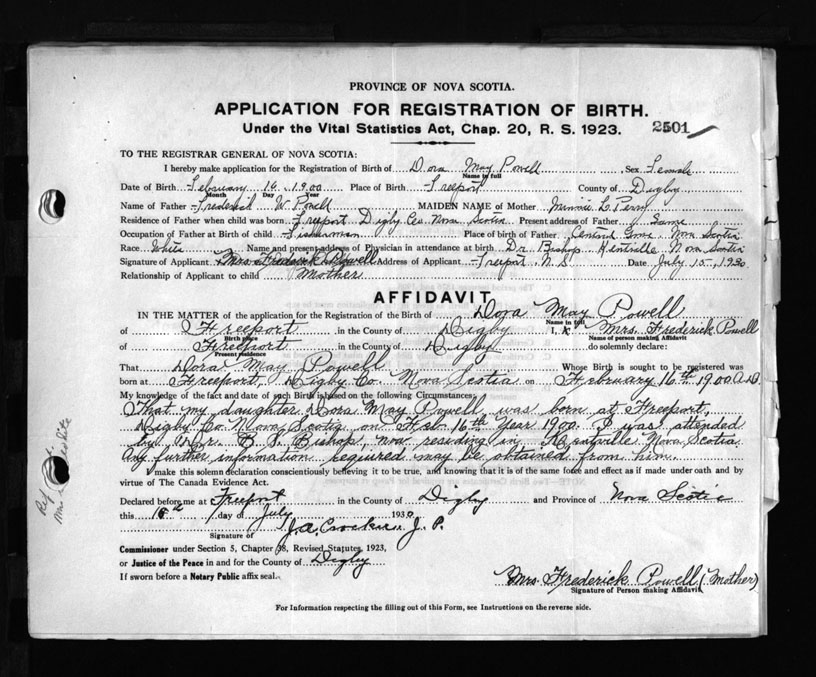 PROVINCE OF NOVA SCOTIA.
APPLICATION FOR REGISTRATION OF BIRTH.
Under the Vital Statistics Act, Chap. 20, R. S. 1923. 2501
TO THE REGISTRAR GENERAL OF NOVA SCOTIA:
I hereby make application for the Registration of Birth of Dora May Powell Sex Female
Name in full
Date of Birth February 16, 1900 Place of Birth Freeport County of Digby
Month Day Year
Name of Father Frederick W. Powell MAIDEN NAME of Mother Minnie L. Perry
Residence of Father when child was born Freeport Digby Co. Nova Scotia Present address of Father Same
Occupation of Father at Birth of child Fisherman Place of birth of Father Central Grove Nova Scotia
Race White Name and present address of Physician in attendance at birth Dr. Bishop Kentville Nova Scotia
Signature of Applicant Mrs Frederick Powell Address of Applicant Freeport, N.S. Date July 15, 1930
Relationship of Applicant to child Mother
AFFIDAVIT
IN THE MATTER of the application for the Registration of the Birth of Dora May Powell
Name in full
of Freeport in the County of Digby I, Mrs. Frederick Powell
Birth place Name of person making Affidavit
of Freeport in the County of Digby do solemnly declare:
Present residence
That Dora May Powell Whose Birth is sought to be registered was
born at Freeport, Digby Co. Nova Scotia on February 16th 1900 A.D.
My knowledge of the fact and date of such Birth is based on the following Circumstances:
That my daughter Dora May Powell, was born at Freeport,
Digby Co. Nova Scotia on Feb. 16th Year 1900. I was attended
by Dr. Bishop, now residing in Kentville Nova Scotia.
Any further information required may be obtained from him.
make this solemn declaration conscientiously believing it to be true, and knowing that it is of the same force and effect as if made under oath and by
virtue of The Canada Evidence Act.
Declared before me at Freeport in the County of Digby and Province of Nova Scotia
this 15th day of July 1930
Signature of J.P.
Commissioner under Section 5, Chapter 38, Revised Statutes, 1923,
or Justice of the Peace in and for the County of Digby
If sworn before a Notary Public affix seal.
Mrs. Frederick Powell (Mother)
Signature of Person making Affidavit
For Information respecting the filling out of this Form, see Instructions on the reverse side.